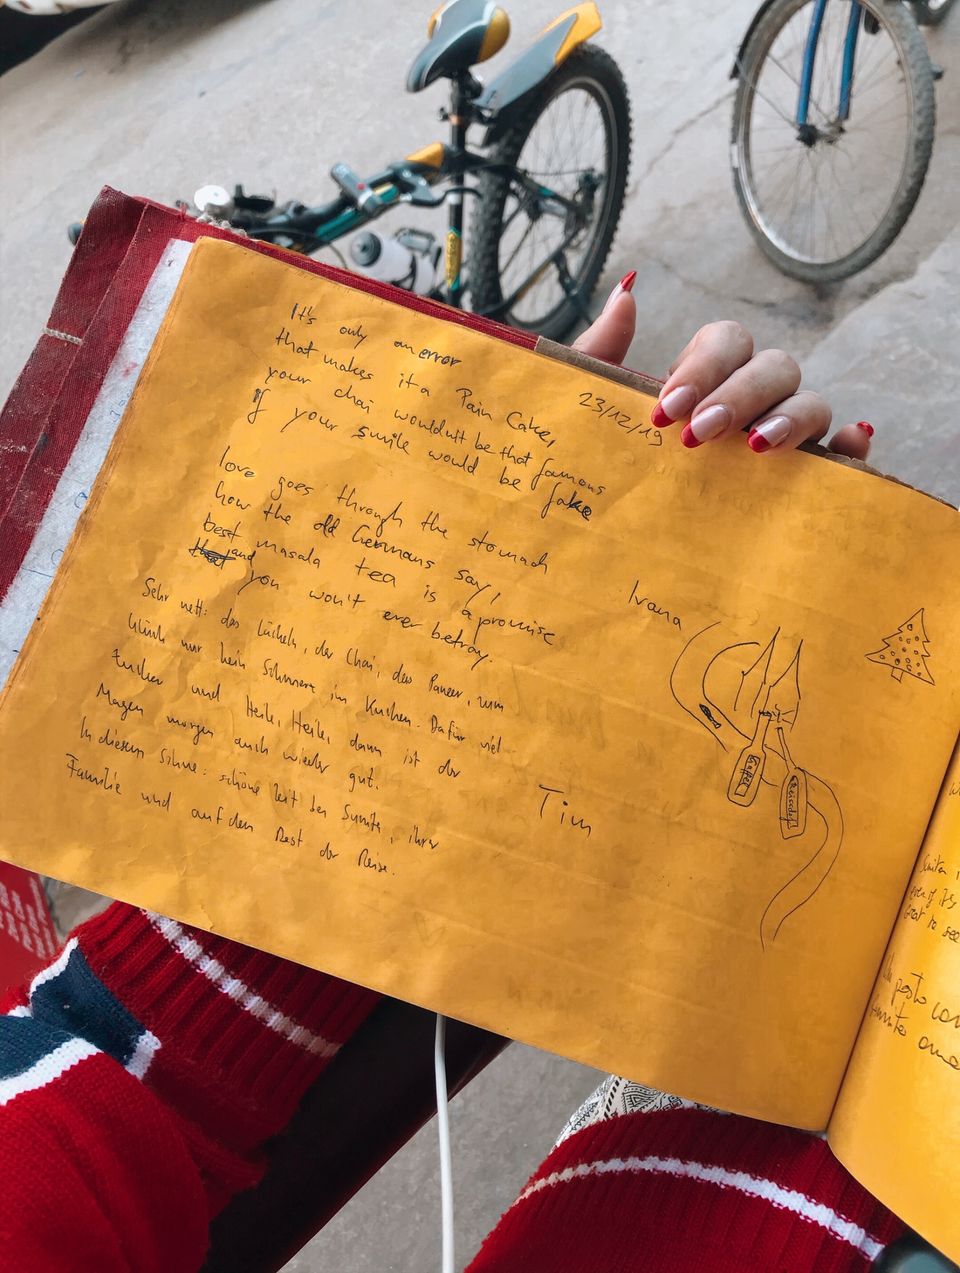 23/12/19
It's only an error
that makes it a Pain Cake,
your chai wouldn't be that famous
If your smile would be fake
love goes through the stomach
how the old Germans say,
best masala tea is a promise
and you won't ever betray.
Ivana
Sehr nett: das Lächeln, der Chai, das Paneer, zum
Glück nur kein Schmerz im Kuchen. Dafür viel
Zucker und Heile, Heile, dann ist der
Magen morgen auch wieder gut.
In diesem Sinne: schöne Zeit bei Sumita, ihrer
Familie und auf dem Rest der Reise.
Tim
Sumita
even if it's
great to see
posto con